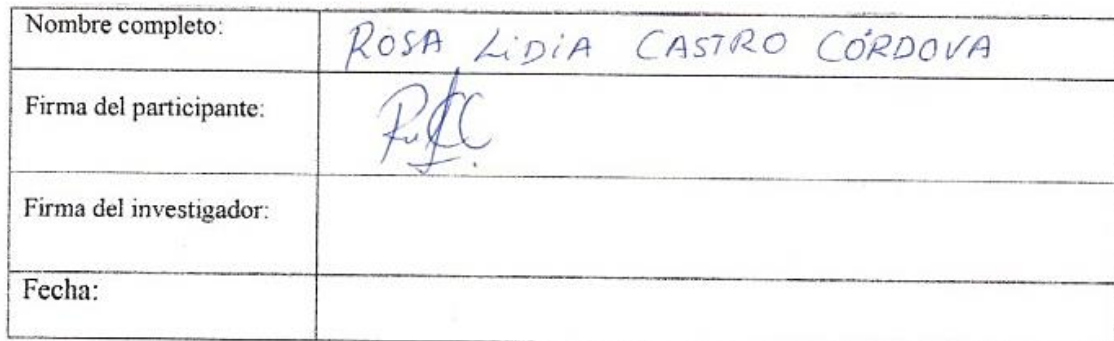 Nombre completo: ROSA LIDIA CASTRO CÓRDOVA
Firma del participante:
Firma del investigador:
Fecha: